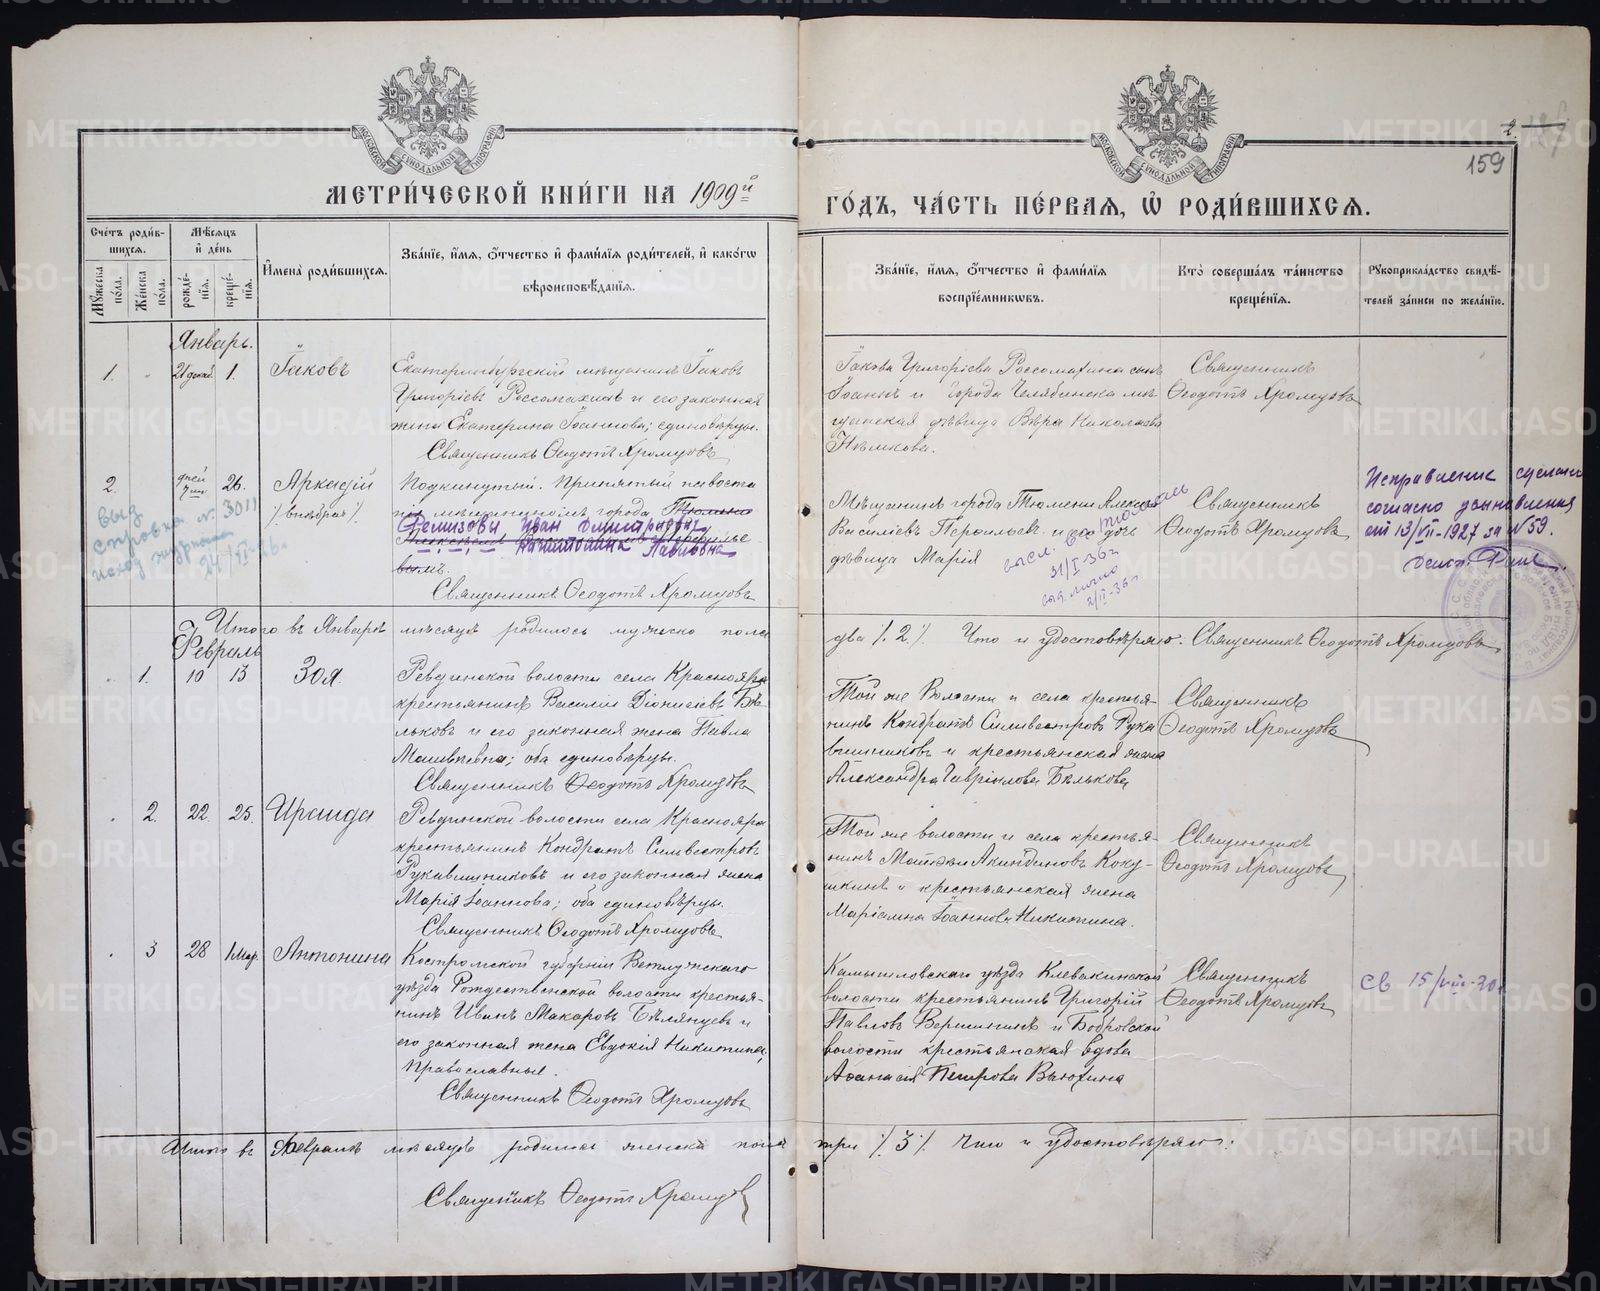 2.
159
МОСКОВСКОЙ СѴНОДАЛЬНОЙ ТИПОГРАФІИ
МОСКОВСКОЙ СѴНОДАЛЬНОЙ ТИПОГРАФІИ
МЕТРИ́ЧЕСКОЙ КНИ́ГИ НА 1909й
ГО́ДЪ, ЧА́СТЬ ПЕ́РВАѦ, Ѡ҆ РОДИ́ВШИХСѦ.
Сче́тъ роди́в-
шихсѧ.
Мꙋ́жеска по́ла.
Же́нска по́ла.
Мѣ́сѧцъ
и҆ де́нь
рожде́-
нїѧ.
креще́-
нїѧ.
И҆мена̀ роди́вшихсѧ.
Зва́нїе, и҆́мѧ, ѻ҆́тчество и҆ фами́лїѧ роди́телей, и҆ како́гѡ
вѣроисповѣ́данїѧ.
Зва́нїе, и҆́мѧ, ѻ҆́тчество и҆ фами́лїѧ
воспрїе́мникѡвъ.
Кто̀ соверша́лъ та́инство
креще́нїѧ.
Рꙋкоприкла́дство свидѣ́-
телей за́писи по жела́нїю.
Январь.
1. 21 декаб. 1. Іаковъ
Екатеринбургскій мѣщанинъ Іаковъ
Григоріевъ Россомахинъ и его законная
жена Екатерина Іоаннова; единовѣрцы.
Священникъ Ѳеодотъ Хромцовъ
Іакова Григоріева Россомахина сынъ
Іоаннъ и города Челябинска мѣ-
щанская дѣвица Вѣра Николаева
Священникъ
Ѳеодотъ Хромцовъ
2. дней 26. Аркадій
Подкинутый. Принятый
мѣщаниномъ города Тюмени
Ремизовы Иван Дмитриевич
Павловна
вымъ.
Священникъ Ѳеодотъ Хромцовъ
выд.
справка № 3011
исход журнала
Мѣщанинъ города Тюмени Алексѣй
Васильевъ и его дочь
дѣвица Марія
31/I-36г
2/II-36г
Священникъ
Ѳеодотъ Хромцовъ
Исправление сделано
согласно усыновления
от 13/VII-1927 за № 59.
Итого въ Январѣ мѣсяцѣ родилось мужеско пола два /2/. Что и удостовѣряю. Священникъ Ѳеодотъ Хромцовъ
Февраль
1. 10 13 Зоя.
Ревдинской волости села Краснояра
крестьянинъ Василій Діонисіевъ Бѣ-
льковъ и его законная жена Павла
Матвѣевна; оба единовѣрцы.
Священникъ Ѳеодотъ Хромцовъ
Той же Волости и села крестья-
нинъ Кондратъ Силивестровъ Рука
вишниковъ и крестьянская жена
Александра Гавріилова Бѣлькова
Священникъ
Ѳеодотъ Хромцовъ
2. 22. 25. Ираида
Ревдинской волости села Краснояра
крестьянинъ Кондратъ Силвестровъ
Рукавишниковъ и его законная жена
Марія Іоаннова; оба единовѣрцы.
Священникъ Ѳеодотъ Хромцовъ
Той же волости и села крестья-
нинъ Матѳей Акиндиновъ Коку-
шкинъ и крестьянская жена
Маріамна Іоаннова Никитина.
Священникъ
Ѳеодотъ Хромцовъ
3 28 1 мар. Антонина
Костромской губерніи Ветлужскаго
уѣзда Рождественской волости крестья-
нинъ Иванъ Макаровъ Бѣлянцевъ и
его законная жена Евдокія Никитина,
Православные.
Священникъ Ѳеодотъ Хромцовъ
Камышловскаго уѣзда Клевакинской
волости крестьянинъ Григорій
Павловъ Вершининъ и Бобровской
волости крестьянская вдова
Аѳанасія Петрова Вьюхина
Священникъ
Ѳеодотъ Хромцовъ
Св 15/VIII-30г
Итого въ Февралѣ мѣсяцѣ родилось женска пола три /3/. Что и удостовѣряю.
Священникъ Ѳеодотъ Хромцовъ
METRIKI.GASO-URAL.RU